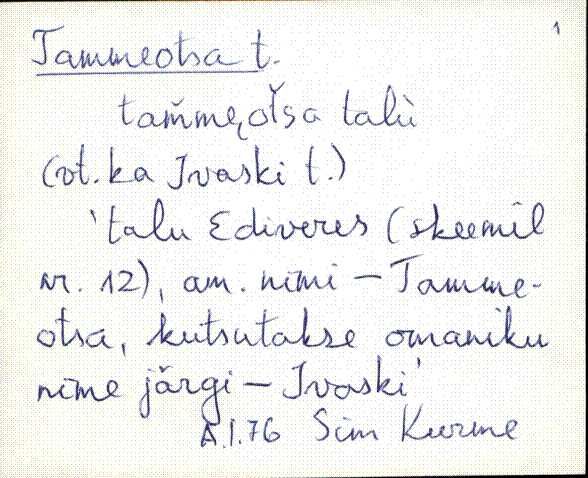 1
Tammeotsa t.
tam̆mę,ot̆sa talù
(vt. ka Ivaski t.)
'talu Ediveres (skeemil
nr. 12), am. nimi – Tamme-
otsa, kutsutakse omaniku
nime järgi – Ivaski'
A.I.76 Siim Kurme